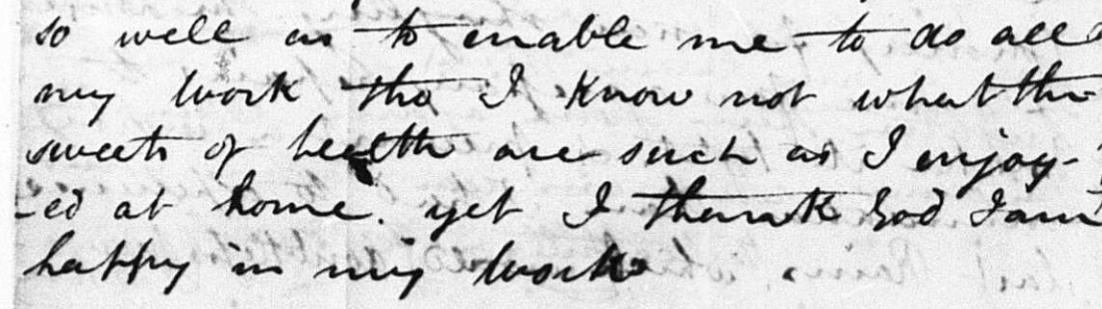 so well as to enable me to do all
my work tho I know not what the
sweets of health are such as I enjoy-
-ed at home. yet I thank God I am
happy in my work